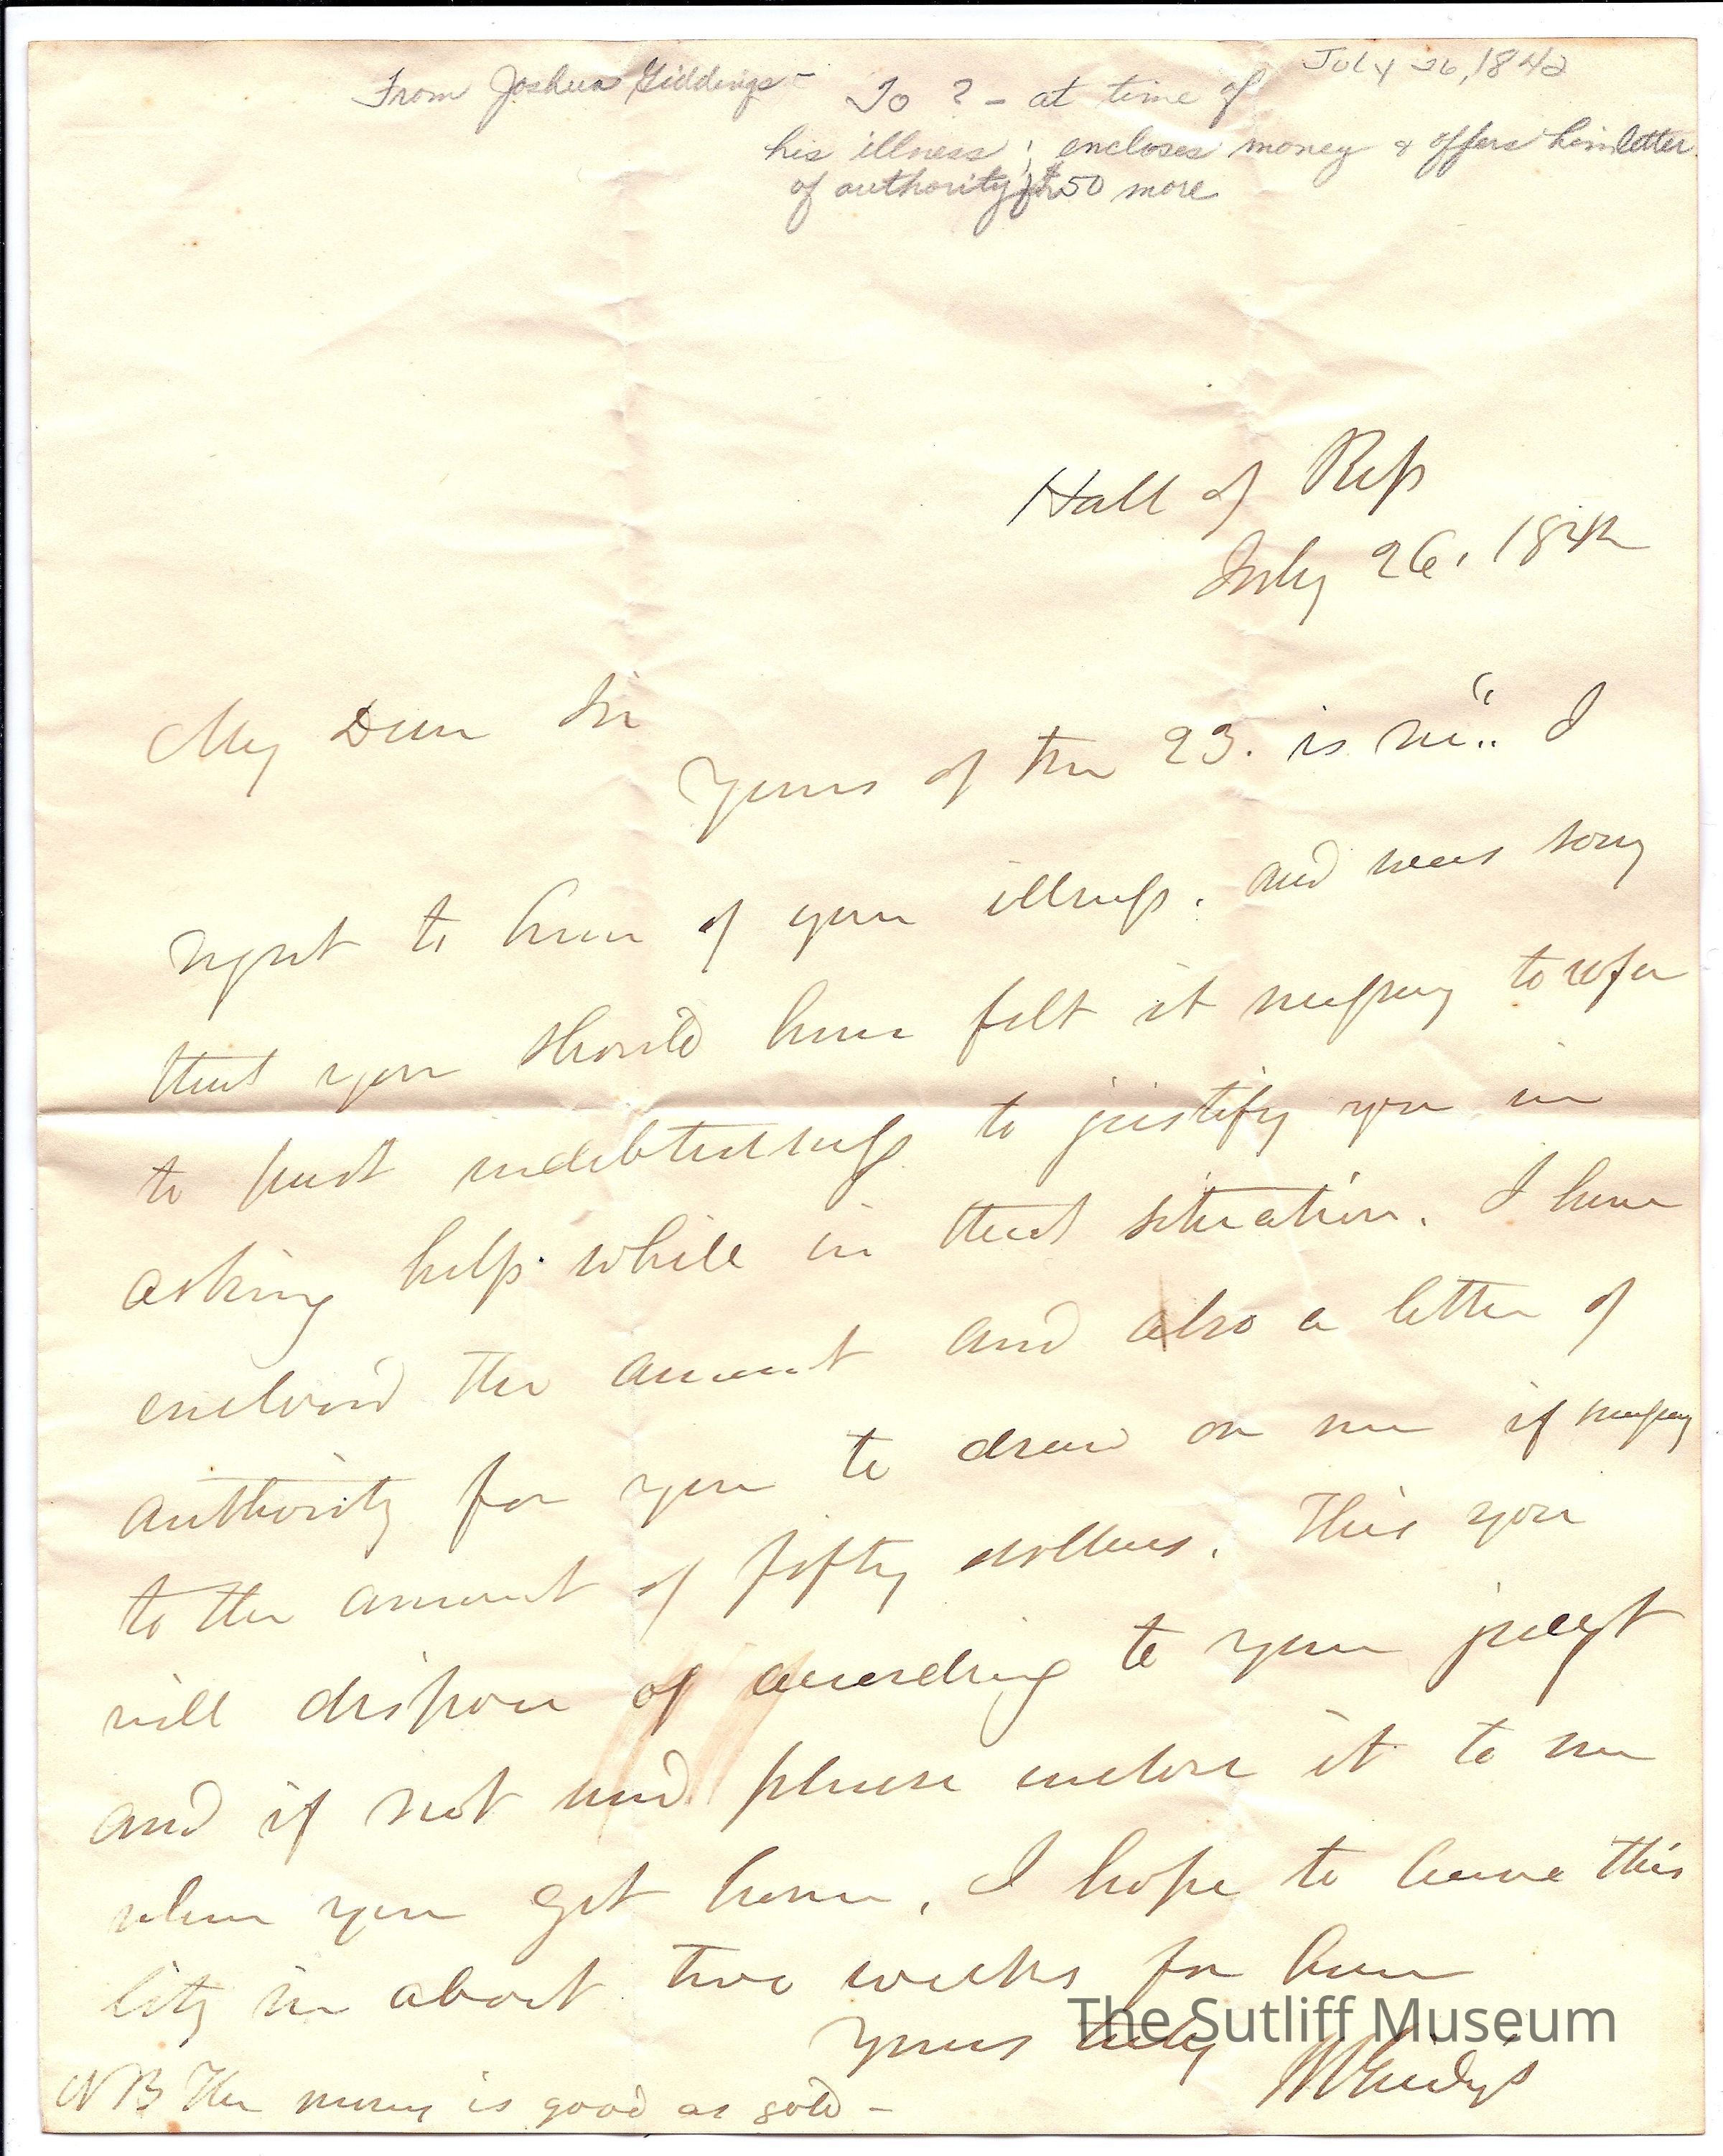 July 26, 1842
From Joshua Giddings - To ? - at time of
his illness; encloses money & offers him letter
of authority for $50 more
Hall of Reps
July 26. 1842
My Dear Sir
Yours of the 23. is rec.. I
regret to hear of your illness. and was sorry
that you should have felt it necessary to refer
to past indebtedness to justify you in
asking help while in that situation. I have
enclosed the amount and also a letter of
authority for you to draw on me if necessary
to the amount of fifty dollars. This you
will dispose of according to your
and if not used please enclose it to me
when you get home. I hope to leave this
City in about two weeks for home
Yours truly
Giddings
NB The money is good as gold -
The Sutliff Museum